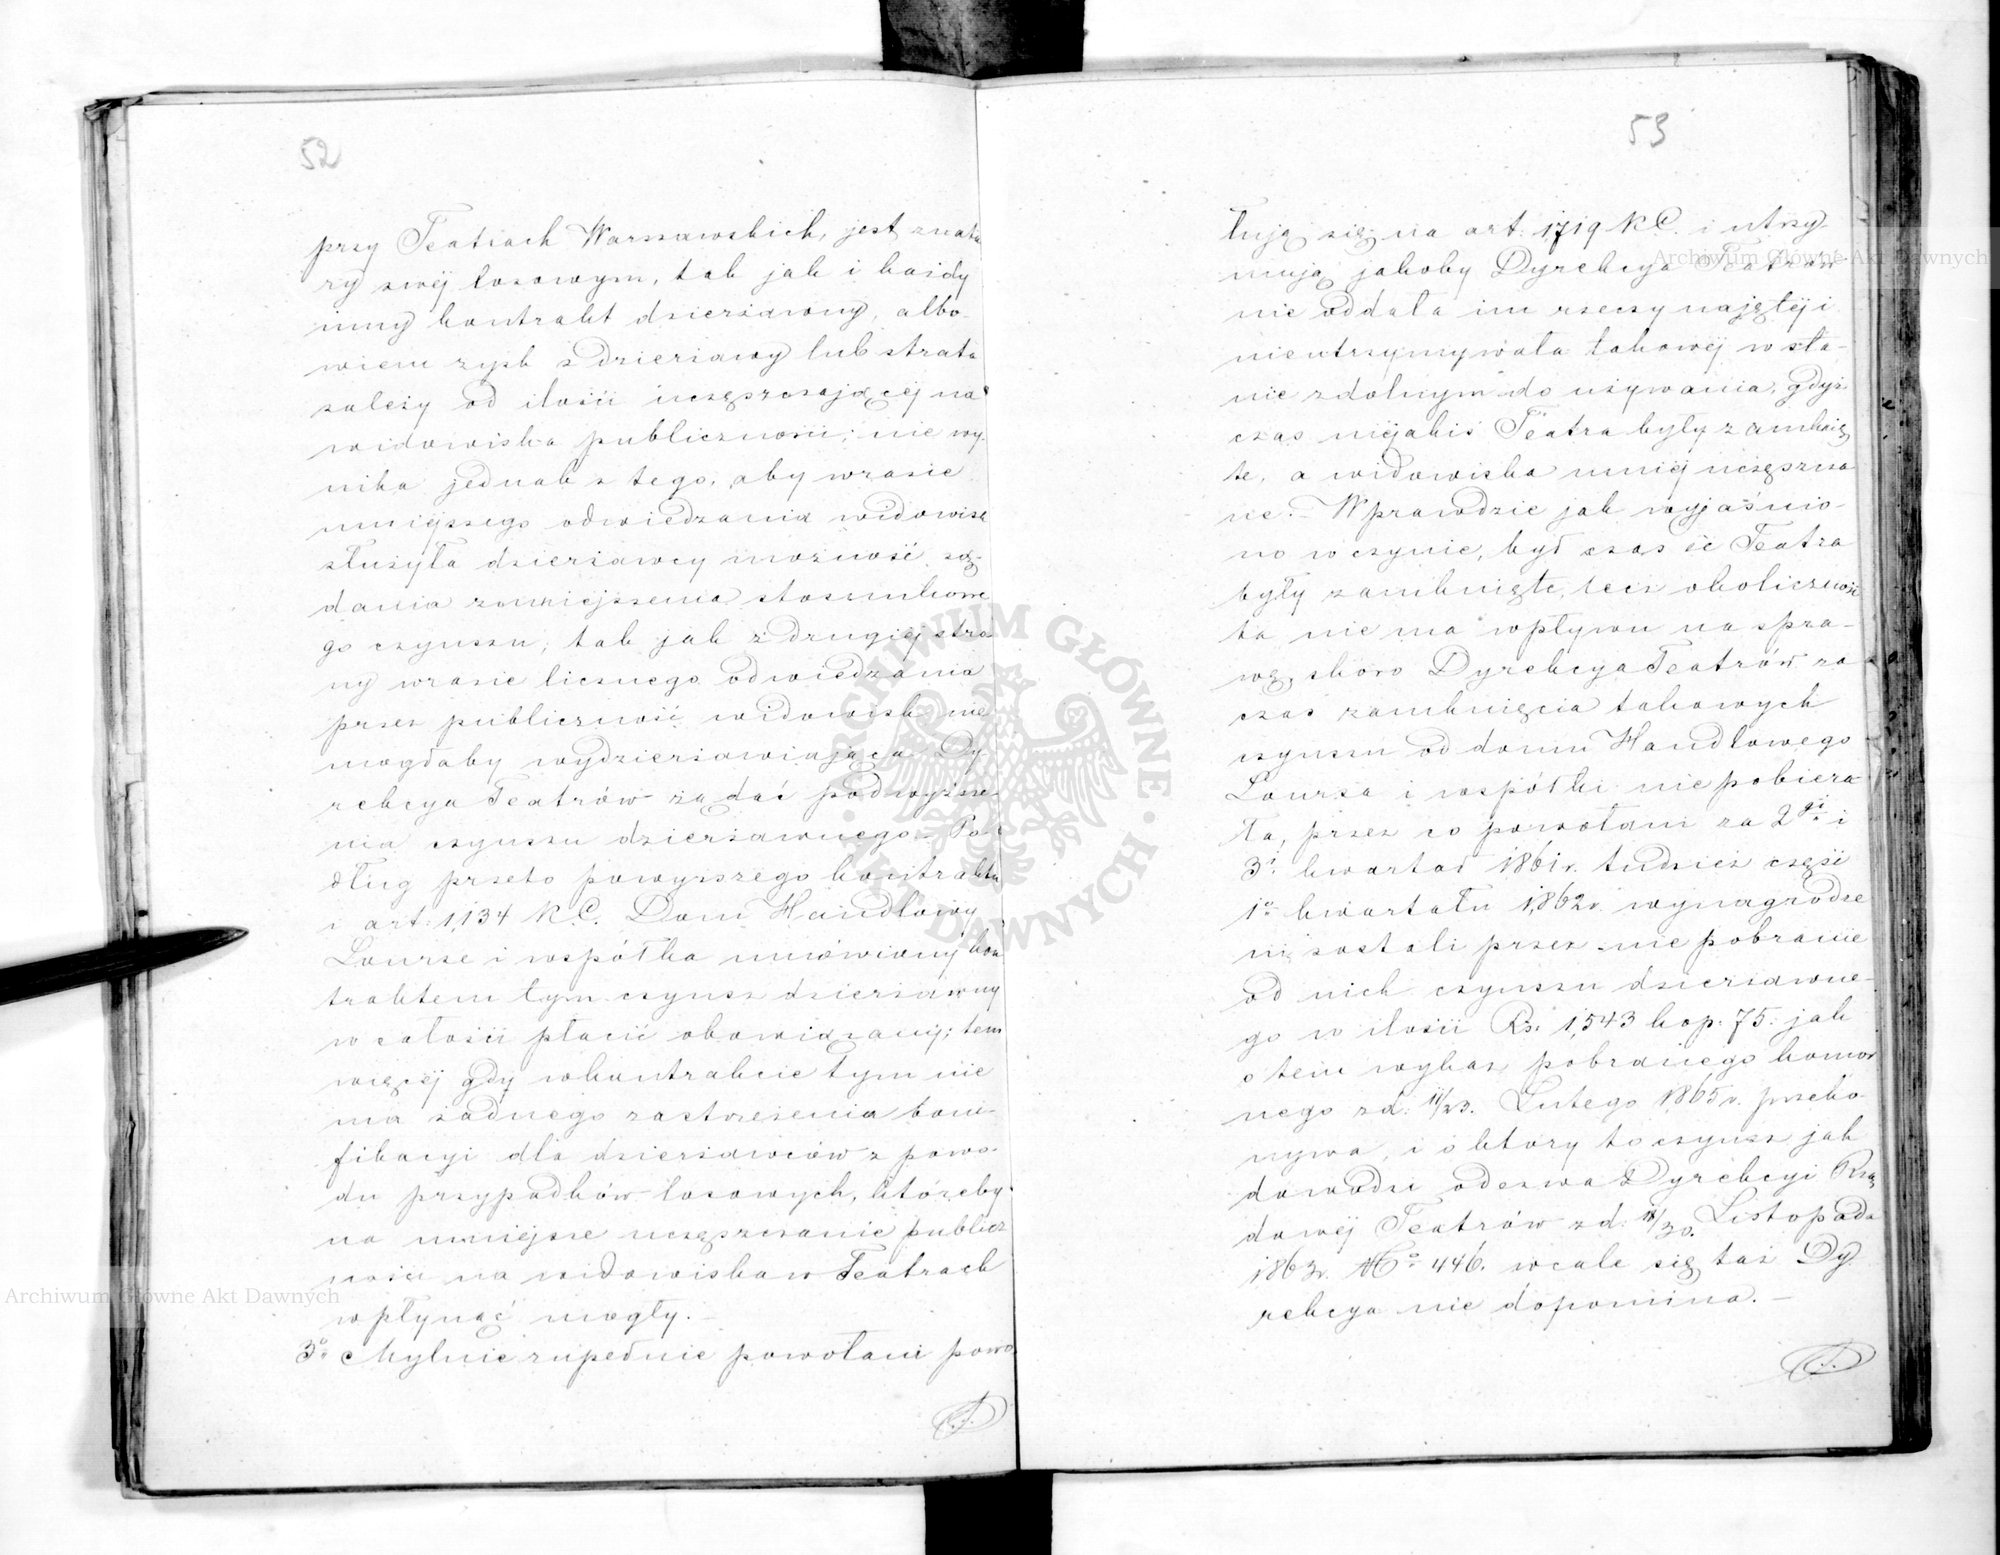 52
przy Teatrach Warszawskich, jest z natu
ry swéj losowym, tak jak i każdy
inny kontrakt dzierżawny, albo-
wiem zysk z dzierżawy lub strata
zależy od ilości uczęszczającéj na
widowiska publiczności; nie wy-
nika jednak z tego, aby w razie
mniejszego odwiedzania widowisk
służyła dzierżawcy możność żą-
dania zmniejszenia stosunkowe
go czynszu, tak jak z drugiéj stro
ny w razie licznego odwiedzania
przez publiczność widowisk nie
mogłaby wydzierżawiająca Dy
rekcya Teatrów żądać podwyższe-
nia czynszu dzierżawnego. Po-
dług przeto powyższego kontraktu
i art: 1,134 K.C. Dom Handlowy
Lourse i wspótka umówiony kon
traktem tym czynsz dzierżawny
w całości płacić obowiązany; tem
więcéj gdy w kontrakcie tym nie
ma żadnego zastrzeżenia boni-
fikacyi dla dzierżawców z powo-
du przypadków losowych, któreby
na mniejsze uczęszczanie publicz
ności na widowiska w Teatrach
wpłynąć mogły. –
3o Mylnie zupełnie powołani powo
53
łują się na art: 1,719 K.C. i utrzy-
mują jakoby Dyrekcya Teatrów
nie oddała im rzeczy najętéj i
nieutrzymywała takowéj w sta-
nie zdolnym do używania, gdyż
czas niejakiś Teatra były zamknię
te, a widowiska mniéj uczęszcza
ne. – Wprawdzie jak wyjaśnio-
no w czynie, był czas że Teatra
były zamknięte, lecz okoliczność
ta nie ma wpływu na spra-
wę, skoro Dyrekcya Teatrów za
czas zamknięcia takowych
czynszu od domu Handlowego
Lourse i wspótki nie pobiera-
ła, przez co powołani za 2gi i
3i kwartał 1861 r. tudzież część
1o kwartału 1,862 r. wynagrodze
ni zostali przez nie pobranie
od nich czynszu dzierżawne-
go w ilości Rs. 1,543 kop: 75. jak
o tem wykaz pobranego komor
nego z d: 11/23. Lutego 1,865 r. przeko
nywa, i o który to czynsz jak
dowodzi odezwa Dyrekcyi Rzą
dowéj Teatrów z d: 18/30. Listopada
1863 r. No 446. wcale się taż Dy
rekcya nie dopomina. –
ARCHIWUM GŁÓWNE AKT DAWNYCH
Archiwum Główne Akt Dawnych
Archiwum Główne Akt Dawnych